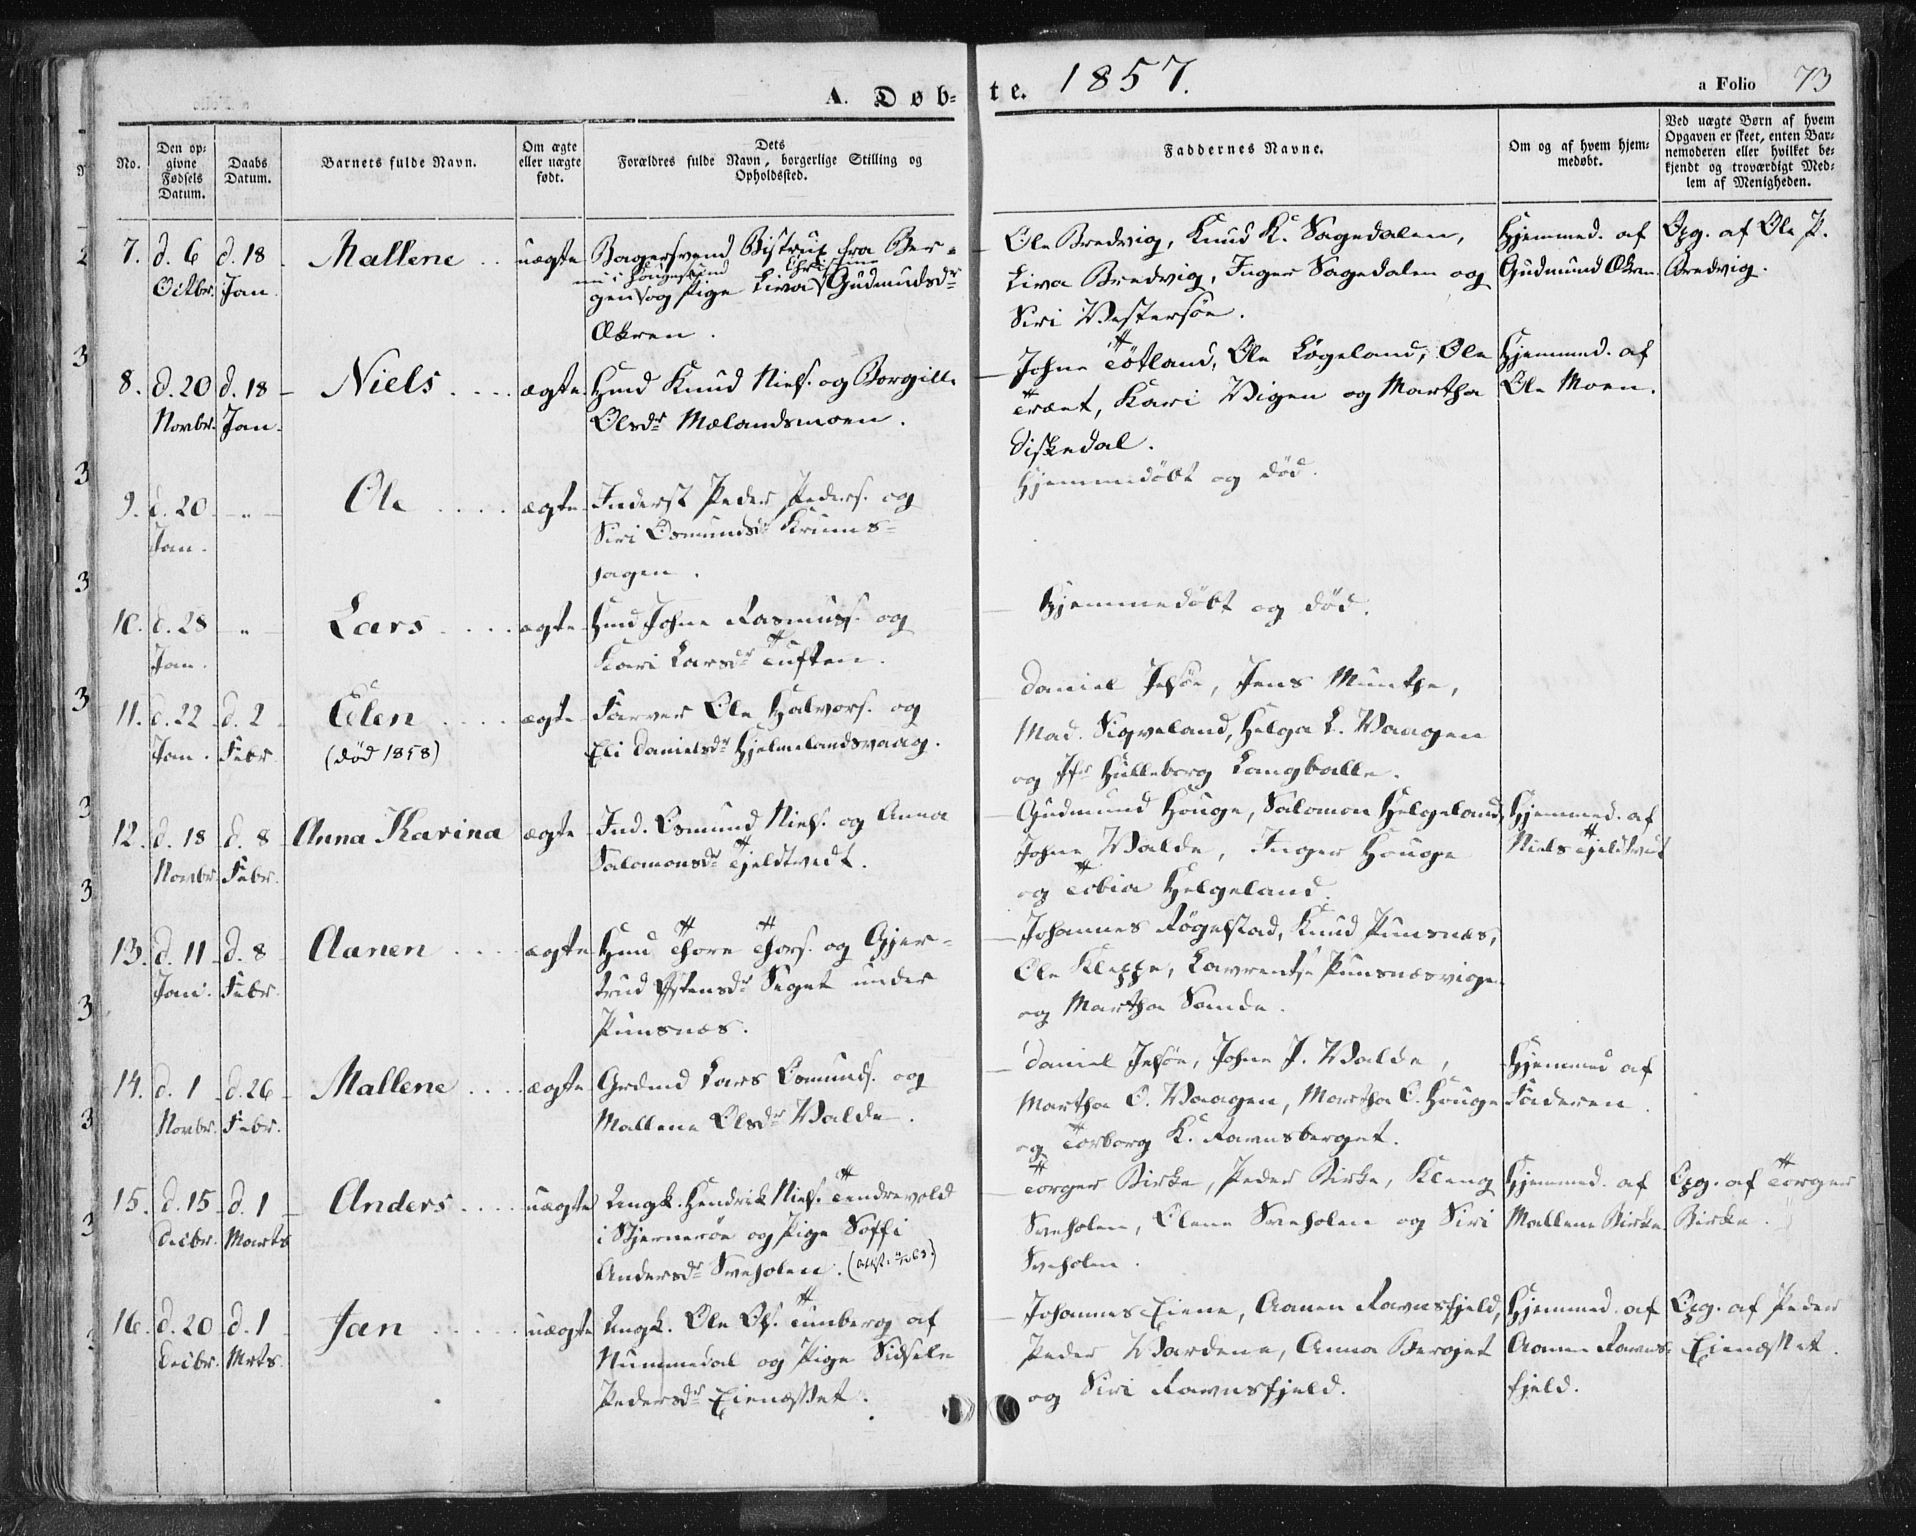 A. Døb-
te. 1857.
a Folio 73
No.
Den op-
givne
Fødsels
Datum.
Daabs
Datum.
Barnets fulde Navn.
Om ægte
eller uægte
født.
Dets
Forældres fulde Navn, borgerlige Stilling og
Opholdssted.
Faddernes Navne.
Om og af hvem hjem-
medøbt.
Ved uægte Børn af hvem
Opgaven er skeet, enten Bar-
nemoderen eller hvilket be-
kjendt og troværdigt Med-
lem af Menigheden.
7. d. 6 Octbr. d. 18 Jan. Mallene uægte
Bagersvend Bistrup fra Ber-
nu i Haugesund Christine
gen og Pige Liva Gudmundsdr
Økren.
Ole Bredvig, Knud K. Sagedalen,
Liva Bredvig, Inger Sagedalen og
Siri Vestersøe.
Hjemmed. af
Gudmund Økren.
Opg. af Ole P.
Bredvig.
8. d. 20 Novbr. d. 18 Jan. Niels ægte
Hmd Knud Niels. og Borgille
Olsdr Mælandsmoen.
Johne Tøtland, Ole Løgeland, Ole
Træet, Kari Vigen og Martha
Diskedal.
Hjemmed. af
Ole Moen.
9. d. 20 Jan. - " - Ole ægte
Inderst Peder Peders. og
Siri Osmundsdr Krums-
hagen.
Hjemmedøbt og død.
10. d. 28 Jan. - " - Lars ægte
Hmd Johne Rasmus. og
Kari Larsdr Tuften.
Hjemmedøbt og død.
11. d. 22 Jan. d. 2 Febr. Eilen ægte
(død 1858)
Farver Ole Halvors. og
Eli Danielsdr Hjelmelandsvaag.
Daniel Jelsøe, Jens Munthe,
Mad. Sigveland, Helga L. Vaagen
og Jfr Hulleborg Langballe.
12. d. 18 Novbr. d. 8 Febr. Anna Karina ægte
Ind. Osmund Niels. og Anna
Salomonsdr Tjeldtvedt.
Gudmund Houge, Salomon Helgeland,
Johne Valde, Inger Houge
og Tobia Helgeland.
Hjemmed. af
Niels Tjeldtvedt
13. d. 11 Jan. d. 8 Febr. Aanen ægte
Hmd Thore Thors. og Gjer-
trud Østensdr Seget under
Punsnes.
Johannes Røgelstad, Knud Punsnes,
Ole Kleppe, Lavrentse Punsnesvigen
og Martha Sande.
14. d. 1 Novbr. d. 26 Febr. Mallene ægte
Grdmd Lars Osmunds. og
Mallene Olsdr Valde.
Daniel Jelsøe, Johne J. Valde,
Martha O. Vaagen, Martha O. Houge
og Torborg K. Ravnsberget.
Hjemmed af
Faderen.
15. d. 15 Decbr. d. 1 Marts Anders uægte
Ungk. Hendrik Niels. Tendrevold
i Stjernerøe og Pige Soffi
Andersdr Sveholen.
Torger Birke, Peder Birke, Kleng
Sveholen, Olene Sveholen og Siri
Sveholen.
Hjemmed. af
Mallene Birke
Opg. af Torger
Birke.
16. d. 20 Decbr. d. 1 Mrts. Jan uægte
Ungk. Ole Ols. Tunberg af
Nummedal og Pige Sidsele
Pedersdr Eienæsset.
Johannes Eiene, Aanen Ravnsfjeld,
Peder Vardene, Anna Berget
og Siri Ravnsfjeld.
Hjemmed. af
Aanen Ravns-
fjeld.
Opg. af Peder
Eienæsset.